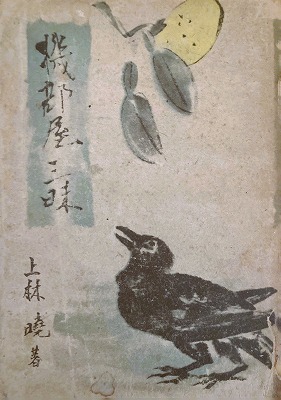 機部屋三昧
上林曉著